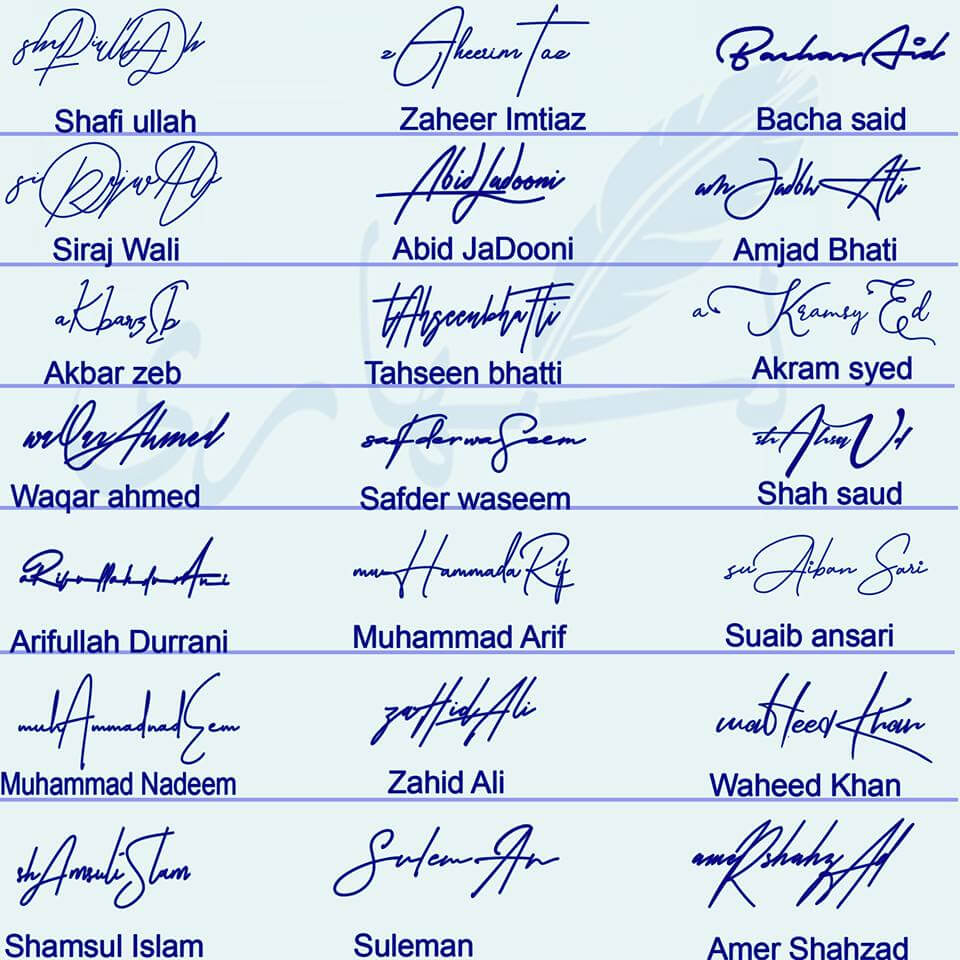 zAheerimTaz
Shafi ullah Zaheer Imtiaz Bacha said
AbidJadooni
Siraj Wali Abid JaDooni Amjad Bhati
aKbarzEb tAhseenbhaTTi aKramsyEd
Akbar zeb Tahseen bhatti Akram syed
waQarAhmed safderwaSeem
Waqar ahmed Safder waseem Shah saud
muHammadaRif suAibanSari
Arifullah Durrani Muhammad Arif Suaib ansari
muhAmmadnadEem zaHidAli waHeedKhan
Muhammad Nadeem Zahid Ali Waheed Khan
shAmsuliSlam SulemAn ameRshahzAd
Shamsul Islam Suleman Amer Shahzad